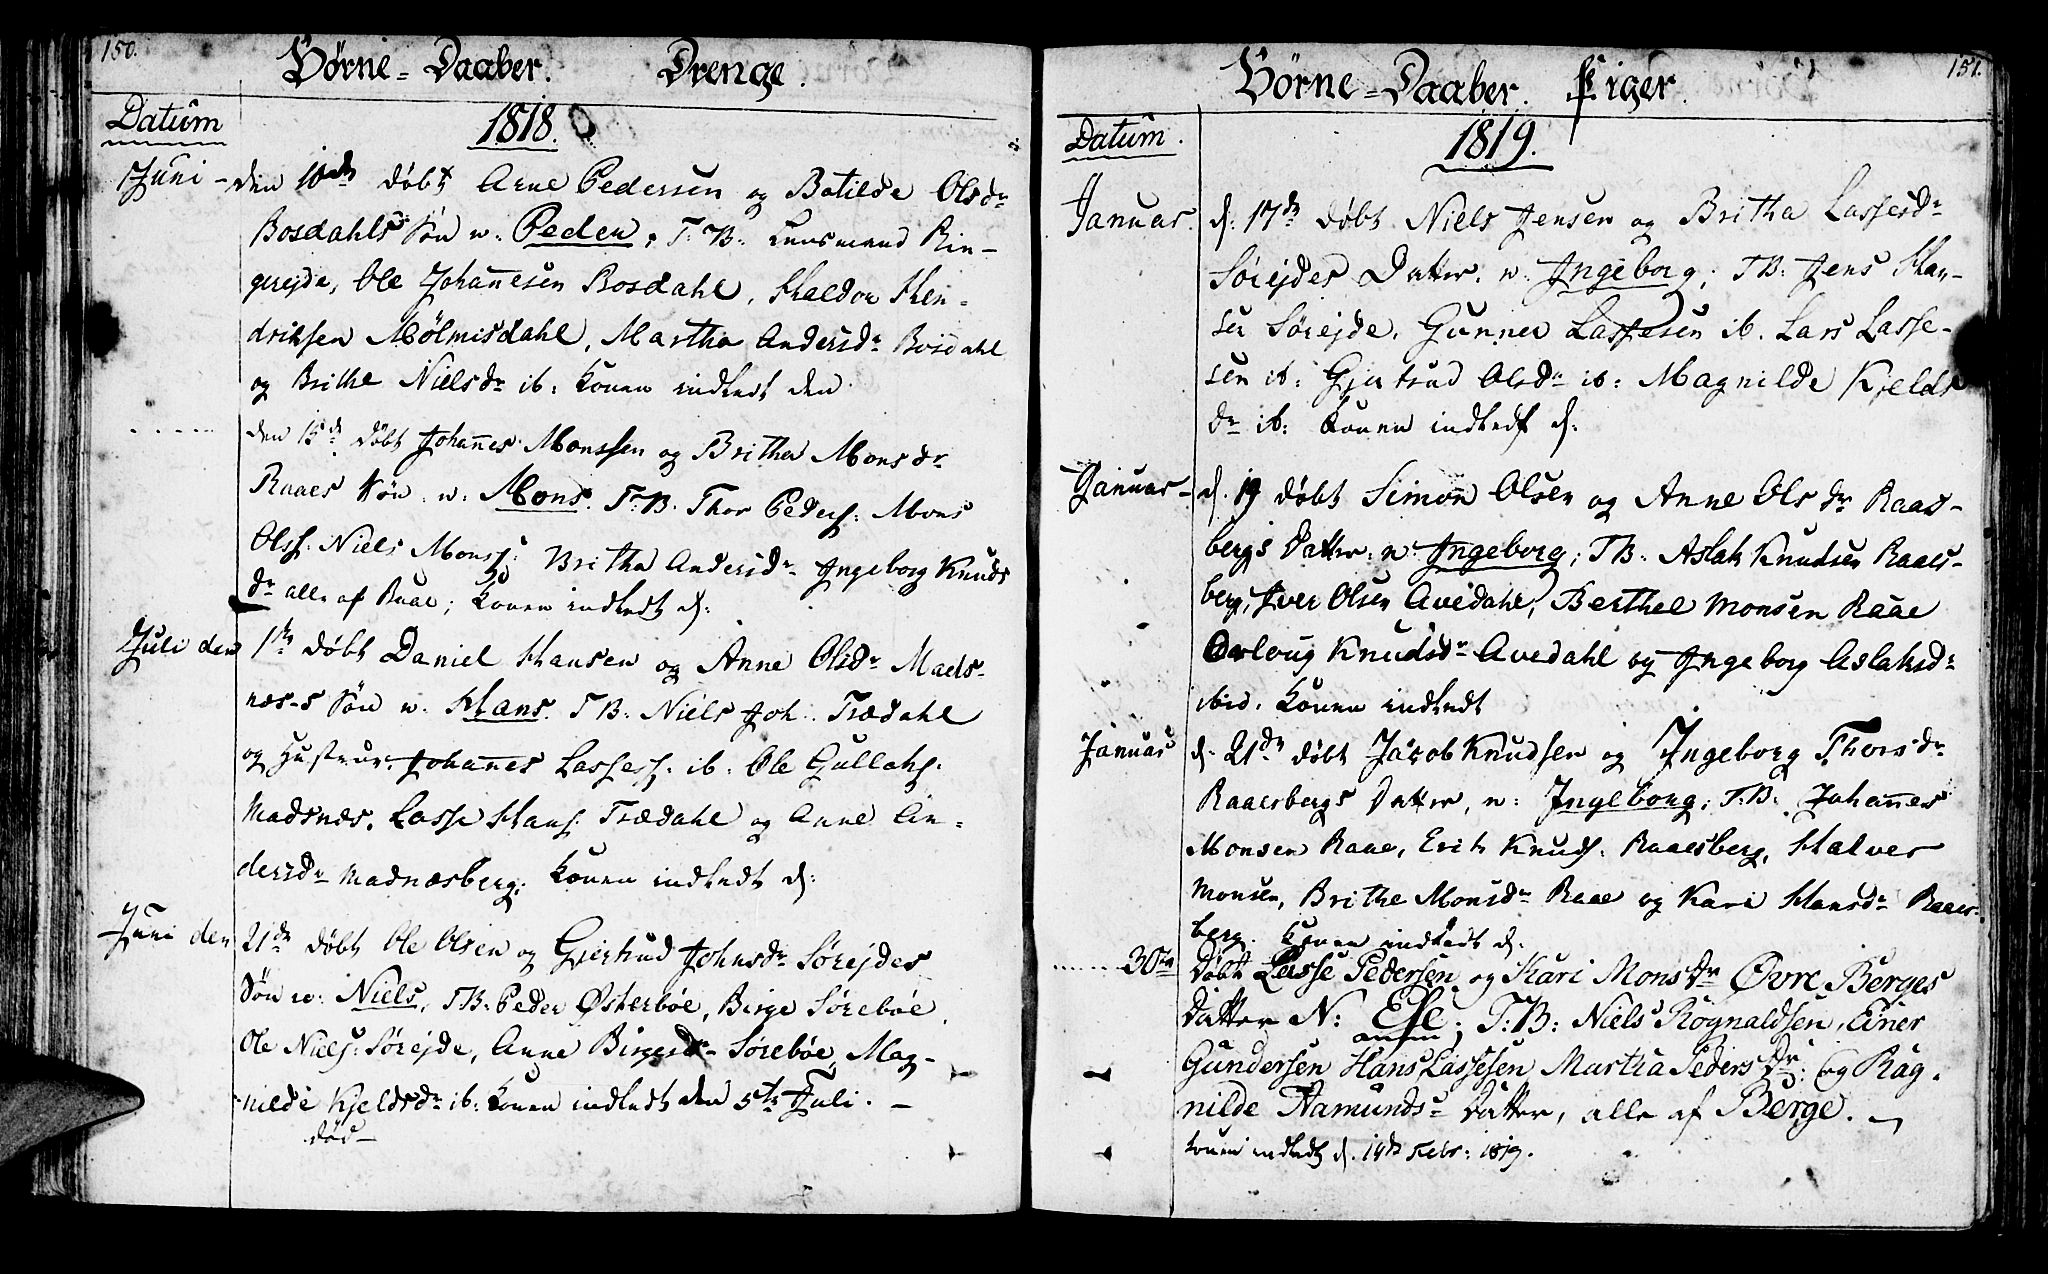 150.
Börne=Daaber. Drenge.
Datum
1818.
Juni – den 10de döbt Arne Pedersen og Botilde Olsdr
Bosdahls Sön n: Peder, T: B: Lensmand Rin-
gerejde, Ole Johannesen Bosdahl, Haldor Hen-
driksen Mölmisdahl, Martha Andersdr Bosdahl
og Brithe Nielsdr ib: Konen indledt den
den 15d döbt Johannes Monssen og Britha Monsdr
Raaes Sön n: Mons. T: B. Thor Peders: Mons
Olss: Niels Monss: Britha Andersdr Ingeborg Knuds
dr alle af Raae; Konen indledt d:
Juli den 1ste döbt Daniel Hansen og Anne Olsdr Mads-
næs-s Sön n. Hans. T B: Niels Joh: Trædahl
og Hustrue. Johannes Lassess. ib: Ole Gullaks.
Madsnæs, Lasse Hans: Trædahl og Anne An-
dersdr Madnæsberg; Konen indledt d:
Juni den 21de döbt Ole Olsen og Gjertrud Johnsdr Sörejdes
Sön n: Niels, T B: Peder Österböe, Birge Söreböe,
Ole Niels: Sörejde, Anne Birgesdr Söreböe, Mag-
nilde Kjeldsdr ib: Konen indledt den 5te Juli. –
död –
151.
Börne=Daaber. Piger.
Datum.
1819.
Januar. d: 17de döbt Niels Jensen og Britha Lassesdr
Sörejdes Datter. n: Ingeborg; T B: Jens Han-
sen Sörejde, Gunner Lassesen ib. Lars Lasse-
sen ib: Gjertrud Olsdr ib: Magnilde Kjelds
dr ib: Konen indledt d:
Januar – d. 19 döbt Simon Olsen og Anne Olsdr Raas-
bergs Datter: n: Ingeborg; T B: Aslak Knudsen Raaes-
berg, Iver Olsen Avedahl, Berthel Monsen Raae
Oerloug Knudsdr Avedahl og Ingeborg Aslaksdr
ibid. Konen indledt
Januar d. 21de döbt Jacob Knudsen og Ingeborg Thorsdr
Raaesbergs Datter, n: Ingeborg; T. B. Johannes
Monsen Raae, Erik Knuds: Raaesberg, Halver
Monsen, Brithe Monsdr Raae og Kari Hansdr Raaes-
berg. Konen indledt d:
30te Döbt Lasse Pedersen og Kari Monsdr Øvre Berges
Datter N: Else; T: B: Niels Rognaldsen, Einer
Gundersen Hans Lassesen Martha Pedersdr: og Rag-
nilde Aamunds Datter, alle af Berge. –
Konen indledt d. 14de Febr: 1819.